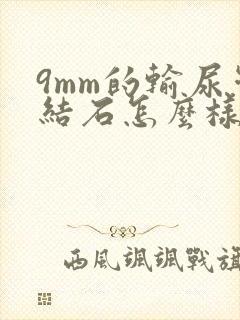 9mm的輸尿
結石怎麼樣
西風颯颯戰旗